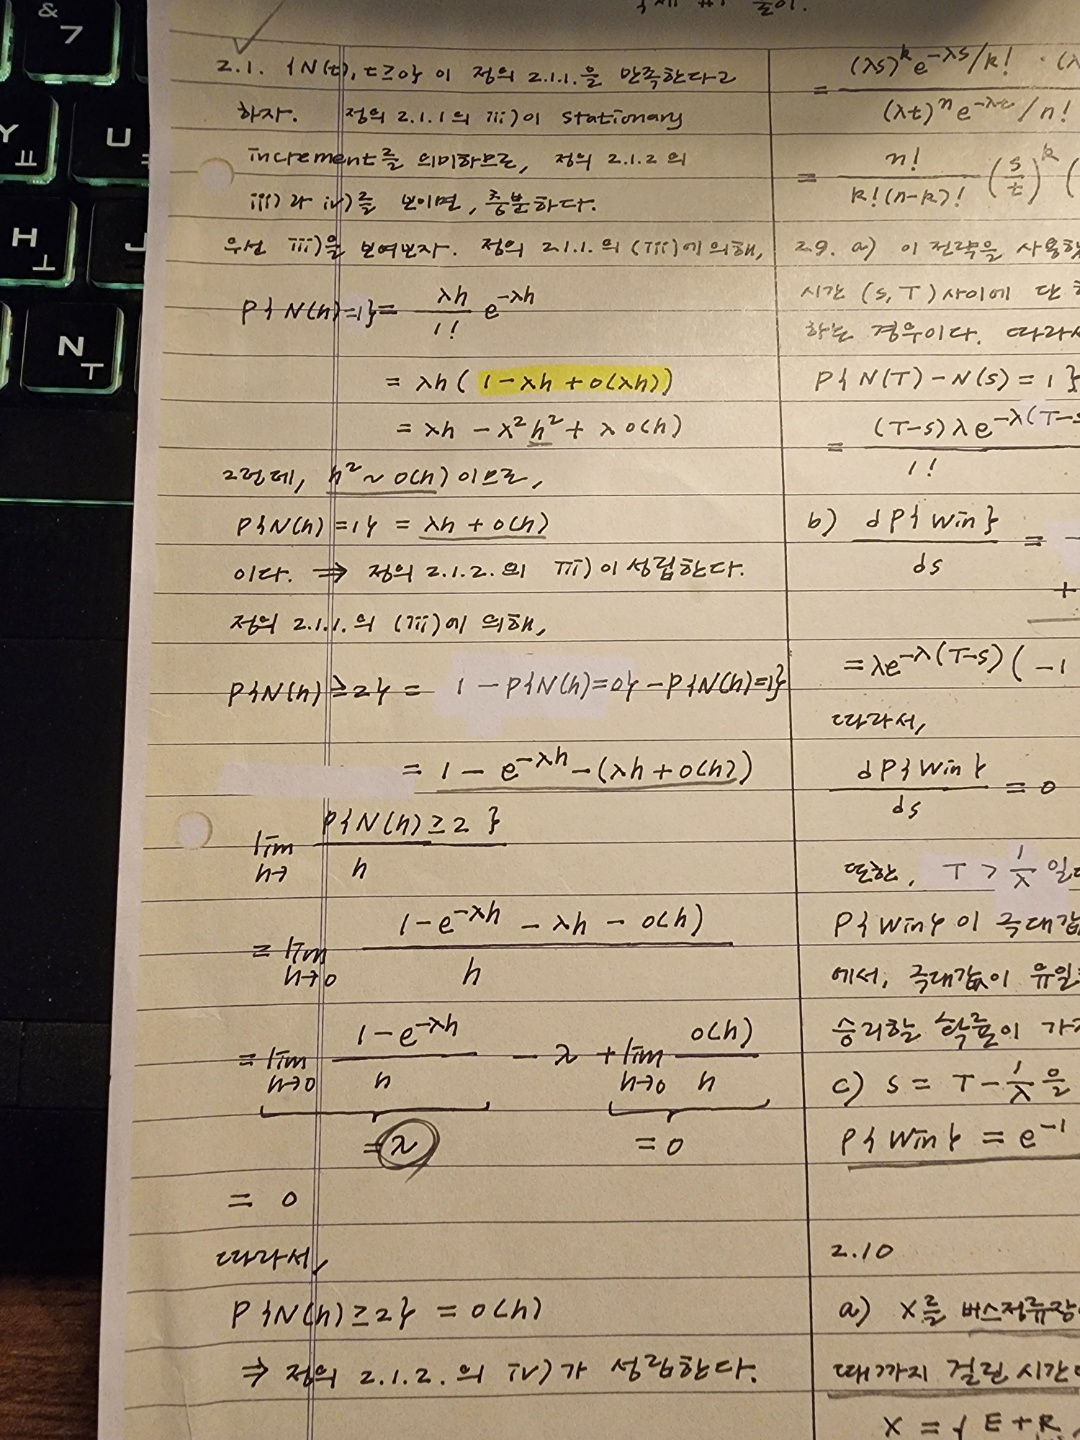 & 7
Y ㅛ
U
H ㅗ
J
N ㅜ
풀이.
2.1. {N(t), t≥0} 이 정의 2.1.1.을 만족한다고
하자. 정의 2.1.1의 iii)이 stationary
increment를 의미하므로, 정의 2.1.2 의
iii)과 iv)를 보이면, 충분하다.
우선 iii)을 보여보자. 정의 2.1.1.의 (iii)에 의해,
P{N(h)=1} = λh/1! e^{-λh}
= λh ( 1-λh + o(λh))
= λh - λ²h² + λ o(h)
그런데, h² ~ o(h) 이므로,
P{N(h)=1} = λh + o(h)
이다. ⇒ 정의 2.1.2. 의 iii)이 성립한다.
정의 2.1.1.의 (iii)에 의해,
P{N(h) ≥2} = 1 - P{N(h)=0} - P{N(h)=1}
= 1 - e^{-λh} - (λh + o(h))
lim h→ P{N(h) ≥2 } / h
= lim h→0 1-e^{-λh} - λh - o(h) / h
= lim h→0 1-e^{-λh} / h - λ + lim h→0 o(h) / h
= λ = 0
= 0
따라서,
P{N(h) ≥2} = o(h)
⇒ 정의 2.1.2. 의 iv)가 성립한다.
= (λs)^k e^{-λs}/k! · (λ / (λt)^n e^{-λt}/n!
= n! / k!(n-k)! (s/t)^k (
2.9. a) 이 전략을 사용
시간 (s, T) 사이에 단
하는 경우이다. 따라서
P{N(T) - N(s) = 1}
= (T-s)λe^{-λ(T-s / 1!
b) dP{win} / ds =
+
= λe^{-λ(T-s)} ( -1
따라서,
dP{win} / ds = 0
또한, T > 1/λ 일
P{win}이 극대값
에서, 극대값이 유일
승리할 확률이 가
c) s = T - 1/λ 을
P{win} = e^{-1}
2.10
a) X를 버스정류장
때까지 걸린 시간
X = { E+R